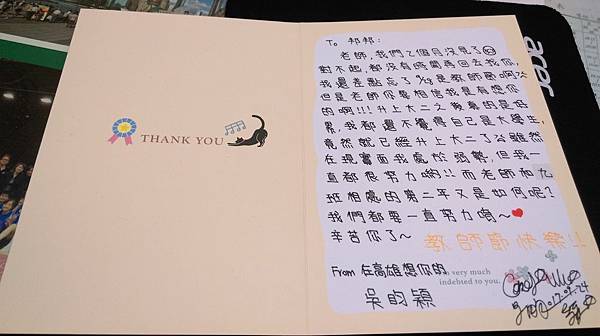 THANK YOU
To 邦邦：
老師，我們2個月沒見了
對不起，都沒有時間再回去找你，
我還差點忘了9/28是教師節啊
但是老師你要相信我是有想你
的啊!!! 升上大二之後真的是好
累，我都還不覺得自己是大學生，
竟然就已經升上大二了 雖然
在現實面我處於弱勢，但我一
直都很努力喲!! 而老師和九
班相處的第二年又是如何呢?
我們都要一直努力唷～❤
辛苦你了～
教師節快樂!!
From 在高雄想你的
very much
indebted to you.
吳昀穎
acer